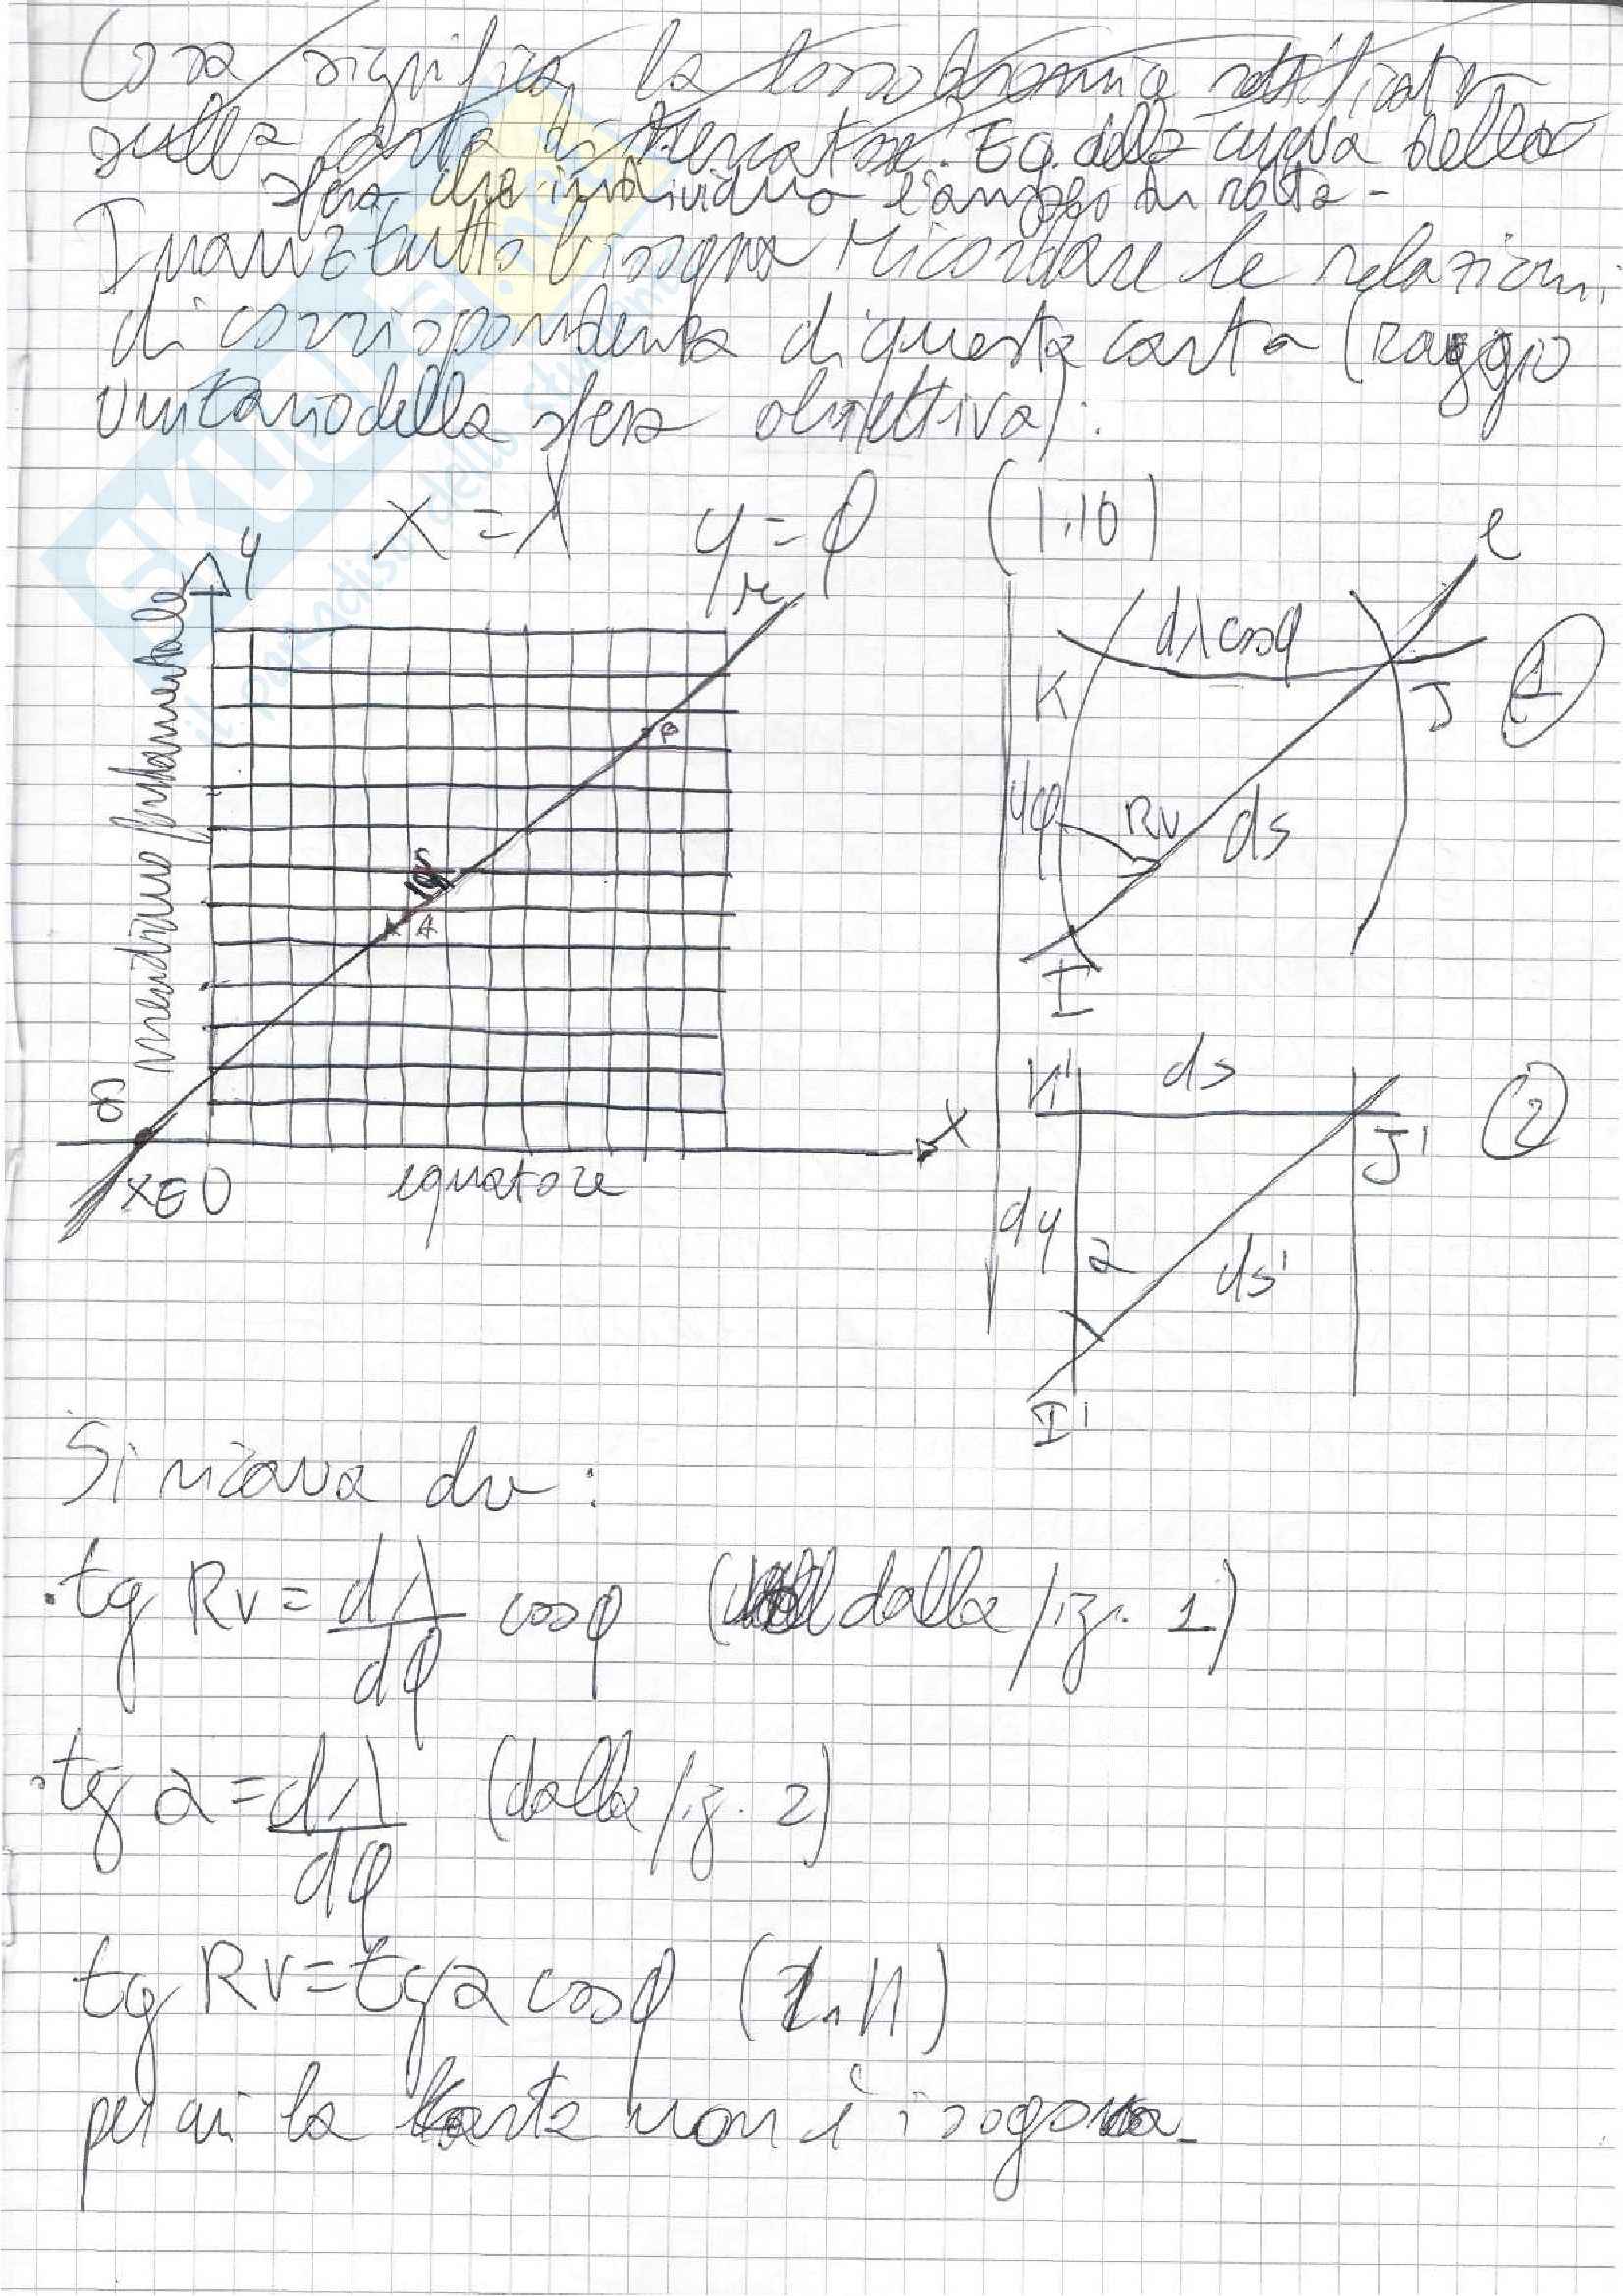 Cosa significa la lossodromica rettificata
sulla carta di Mercatore? Eq. della curva della
sfera che individua l'angolo di rotta -
Innanzitutto bisogna ricordare le relazioni
di corrispondenza di questa carta (raggio
unitario della sfera obiettiva):
x = λ y = φ (1.10)
y
r
l
meridiano fondamentale
dλ cosφ
K
J
1
B
Rv
ds
A
I
K'
ds
2
x
J'
X≡O
equatore
dy
a
ds'
I'
Si ricava che:
. tg Rv = dλ/dφ cosφ ( dalla fig. 1)
. tg a = dλ/dφ (dalla fig. 2)
tg Rv = tg a cosφ (1.11)
per cui la carta non è isogona.